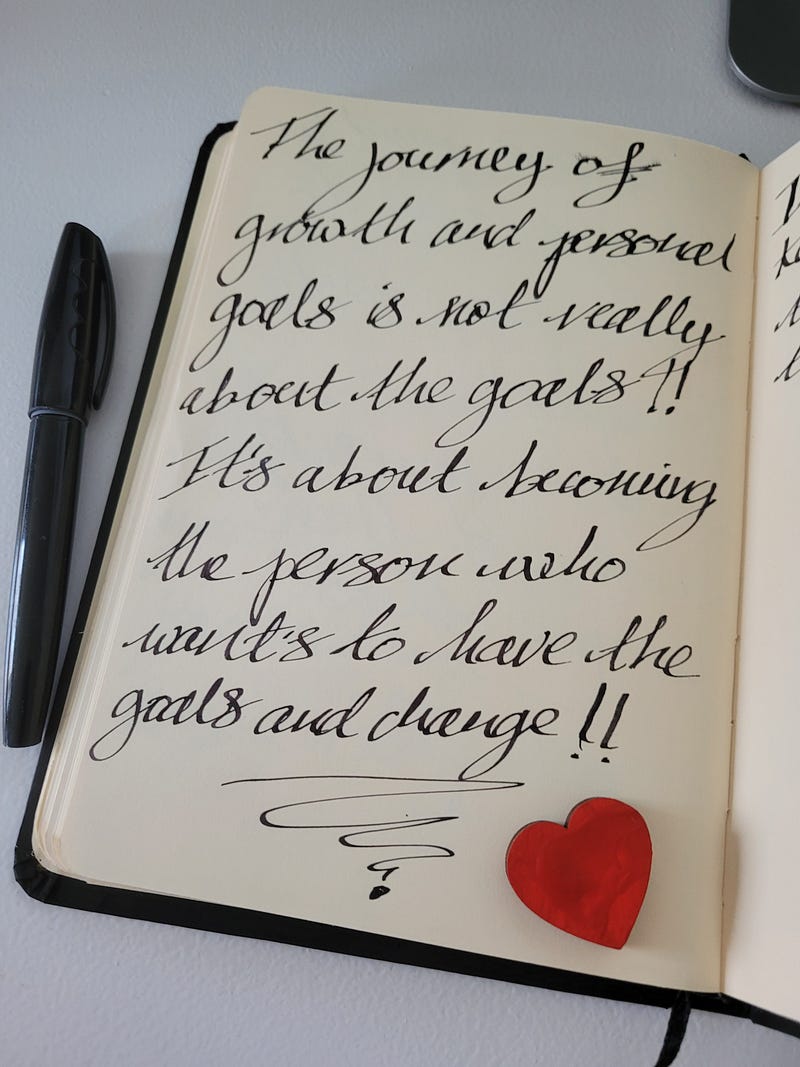 The journey of
growth and personal
goals is not really
about the goals!!
It's about becoming
the person who
want's to have the
goals and change!!